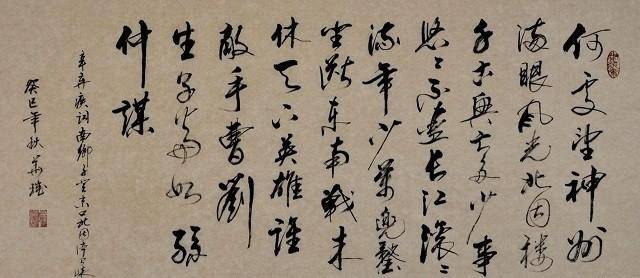 何處望神州
滿眼風光北固樓
千古興亡多少事
悠〻不盡長江滾〻
流年少萬兜鍪
坐斷東南戰未
休天下英雄誰
敵手曹劉
生子當如孫
仲謀
辛棄疾詞南鄉子登京口北固亭有懷
癸巳年秋